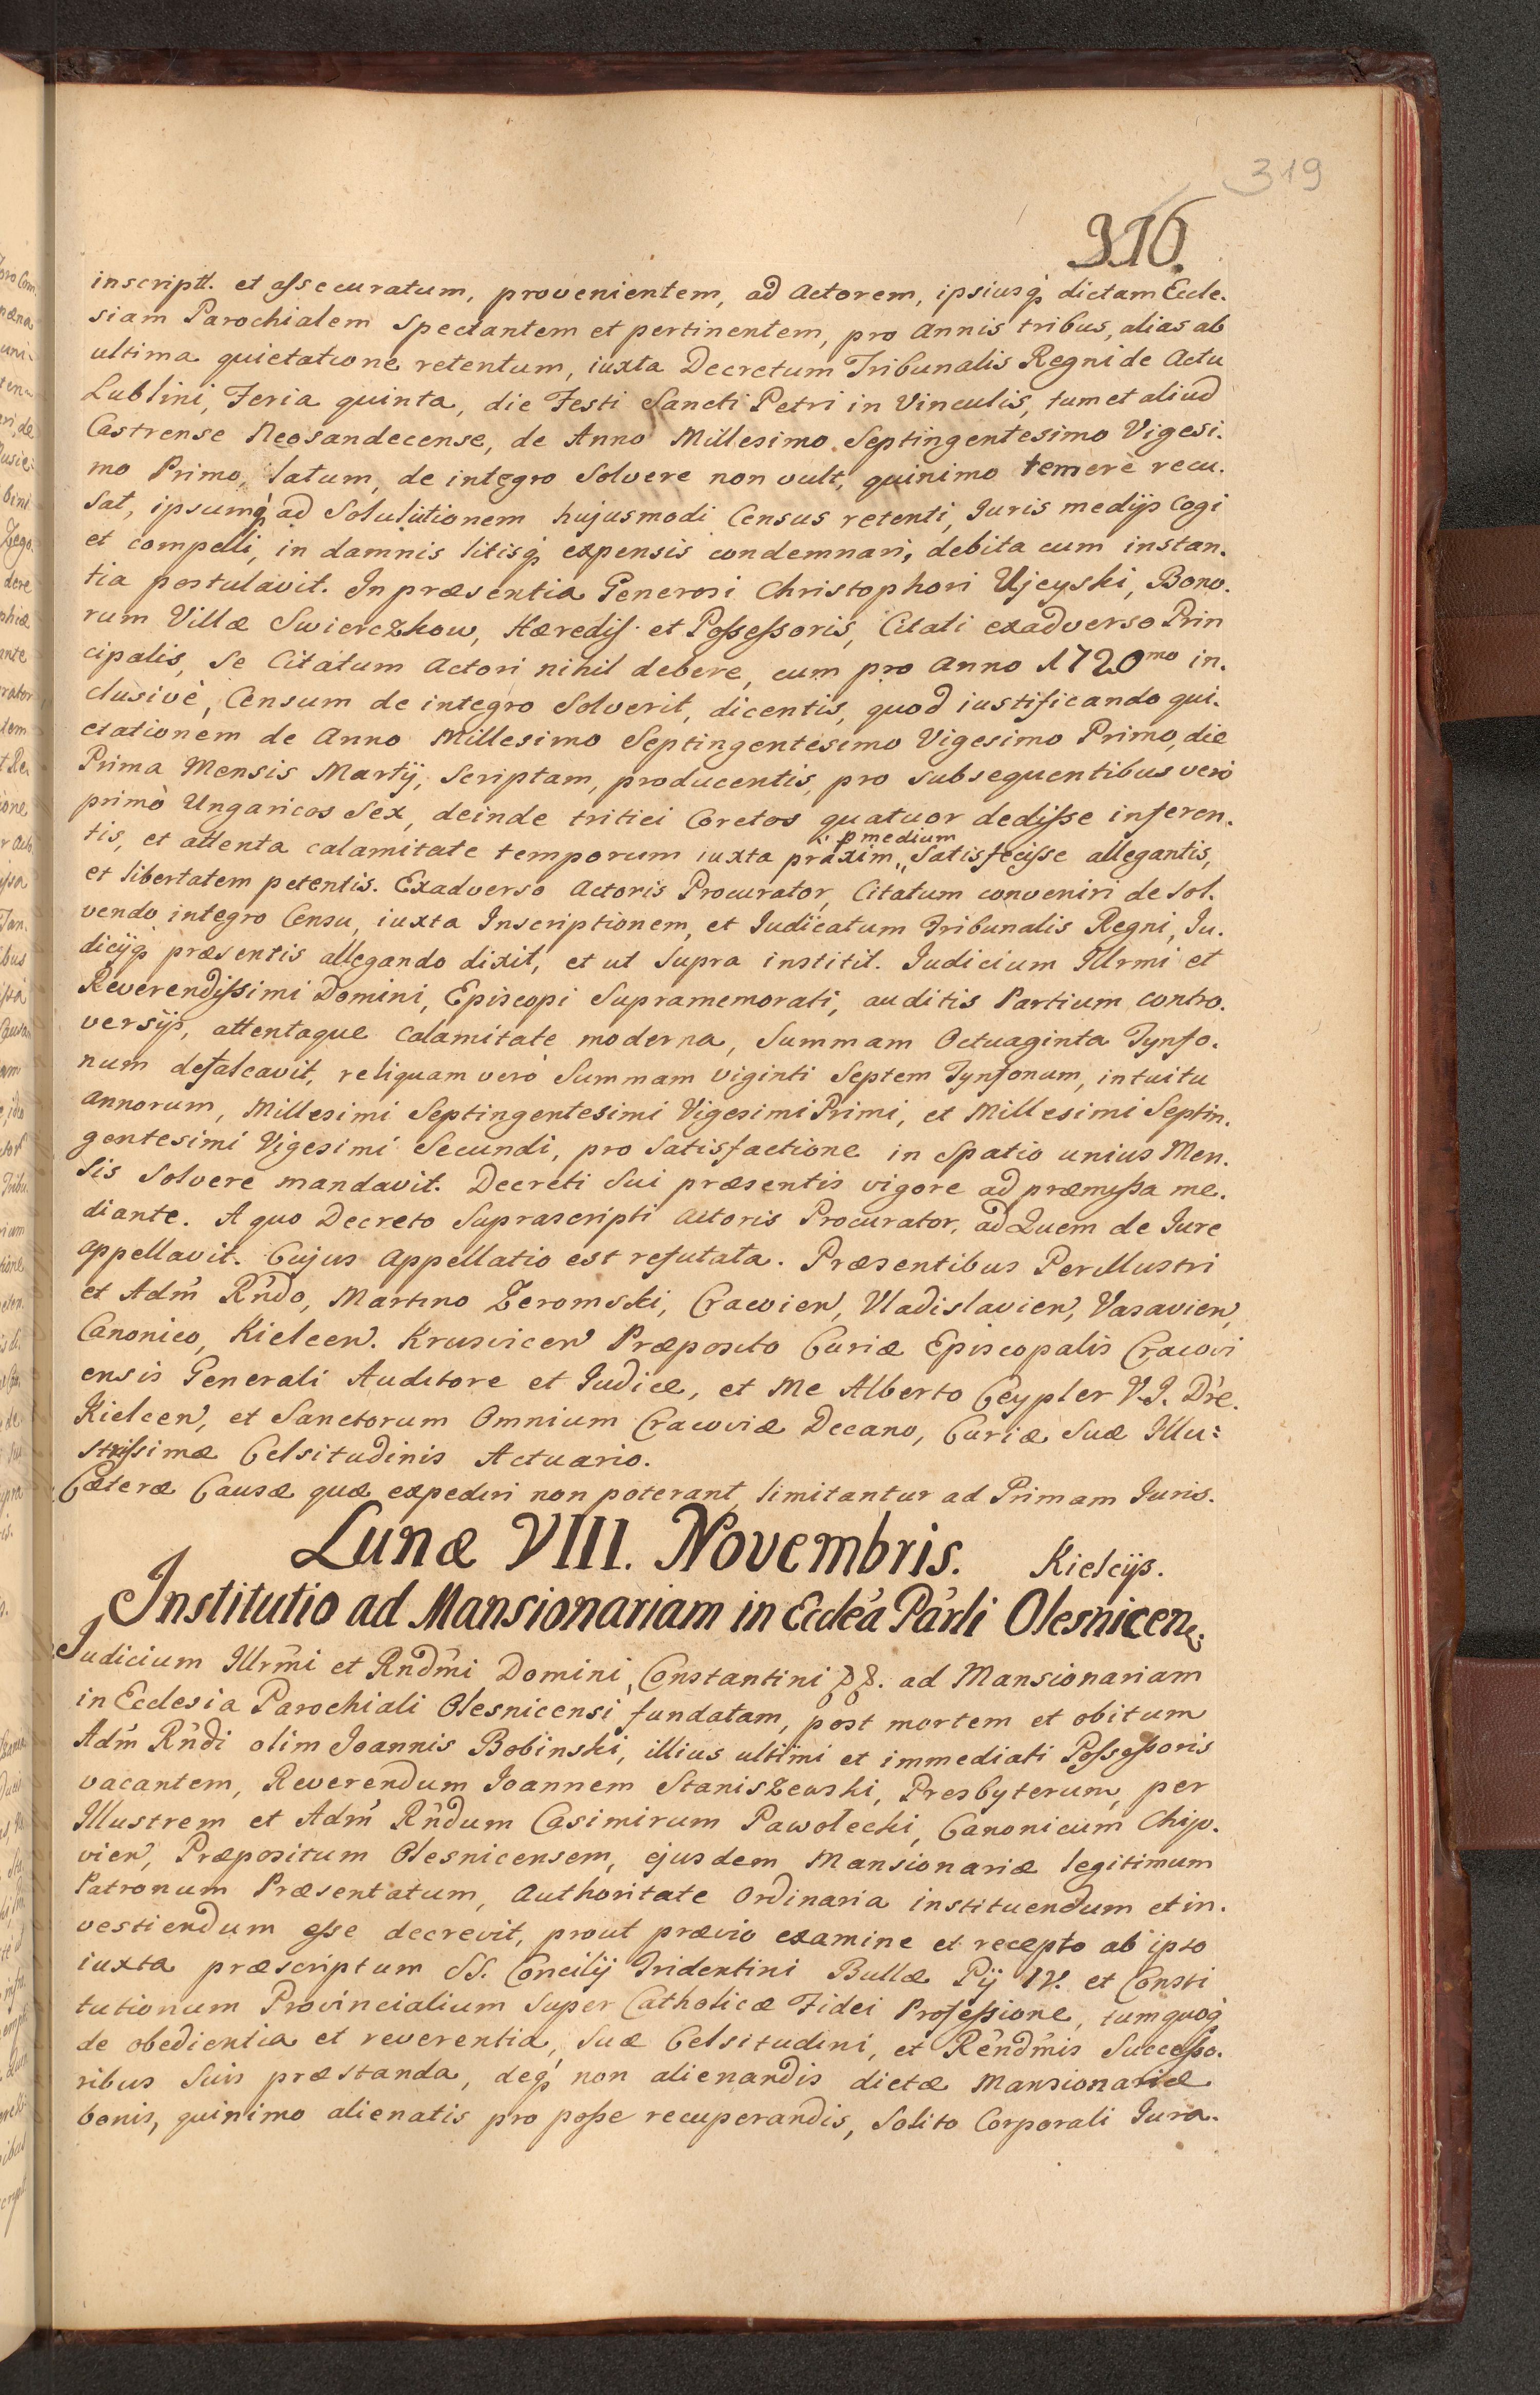 319
316.
inscriptt. et assecuratum, provenientem, ad Actorem, ipsiusq́ dictam Eccle.
siam Parochialem spectantem et pertinentem, pro Annis tribus, alias ab
ultima quietatione retentum, iuxta Decretum Tribunalis Regni de Actu
Lublini, Feria quinta, die Festi Sancti Petri in Vinculis, tum et aliud
Castrense Neosandecense, de Anno Millesimo Septingentesimo Vigesi.
mo Primo, latum, de integro Solvere non vult, quinimo temerè recu.
sat, ipsumq́ ad Solulutionem hujusmodi Census retenti, Juris medijs cogi
et compelli, in damnis litisq́ expensis condemnari, debita cum instan.
tia postulavit. In præsentia Generosi Christophori Ujeyski, Bono.
rum Villæ Swierczkow, Hæredis et Possessoris, Citati exadverso Prin
cipalis, se Citatum Actori nihil debere, cum pro Anno 1720mo in.
clusivè, Censum de integro Solverit, dicentis, quod iustificando qui.
etationem de Anno Millesimo Septingentesimo Vigesimo Primo, die
Prima Mensis Martij, Scriptam, producentis, pro subsequentibus verò
primò Ungaricos Sex, deinde tritici Coretos quatuor dedisse inferen.
p medium
tis, et attenta calamitate temporum iuxta práxim, Satisfecisse allegantis,
et libertatem petentis. Exadverso Actoris Procurator, Citatum conveniri de Sol.
vendo integro Censu, iuxta Inscriptionem, et Judicatum Tribunalis Regni, Ju.
dicijq́ præsentis allegando dixit, et ut supra institit. Judicium Illrmi et
Reverendissimi Domini, Episcopi Supramemorati, auditis Partium contro.
versijs, attentaque calamitate moderna, Summam Octuaginta Tynfo.
num defalcavit, reliquam verò Summam viginti Septem Tynfonum, intuitu
Annorum, Millesimi Septingentesimi Vigesimi Primi, et Millesimi Septin.
gentesimi Vigesimi Secundi, pro satisfactione in Spatio unius Men.
sis Solvere mandavit. Decreti sui præsentis vigore ad præmissa me.
diante. A quo Decreto Suprascripti Actoris Procurator, ad Quem de Jure
appellavit. Cujus Appellatio est refutata. Præsentibus Perillustri
et Adm̃ Rńdo, Martino Zeromski, Cracovien, Vladislavien, Vasavien,
Canonico, Kielcen. Krusvicen Præposito Curiæ Episcopalis Cracovi
ensis Generali Auditore et Judice, et Me Alberto Ceypler V. J. Dre.
Kielcen, et Sanctorum Omnium Cracoviæ Decano, Curiæ Suæ Illu:
strissimæ Celsitudinis Actuario.
Cæteræ Causæ quæ expediri non poterant, limitantur ad Primam Juris.
Lunæ VIII. Novembris. Kielcijs.
Institutio ad Mansionariam in Eccléa Párli Olesnicen:
Judicium Illrḿi et Rnd́mi Domini, Constantini &&. ad Mansionariam
in Ecclesia Parochiali Olesnicensi fundatam, post mortem et obitum
Adḿ Rńdi olim Joannis Bobinski, illius ultimi et immediati Possessoris
vacantem, Reverendum Joannem Staniszewski, Presbyterum, per
Illustrem et Adḿ Rńdum Casimirum Pawołecki, Canonicum Chijo.
vien, Præpositum Olesnicensem, ejusdem Mansionariæ legitimum
Patronum Præsentatum, Authoritate Ordinaria instituendum et in.
vestiendum esse decrevit, prout prævio examine et recepto ab ipso
iuxta præscriptum SS. Concilij Tridentini Bullæ Pij IV. et Consti
tutionum Provincialium Super Catholicæ Fidei Professione, tum quoq́
de obedientia et reverentia, Suæ Celsitudini, et Rénd́mis Successo.
ribus Suis præstanda, deq́ non alienandis dictæ Mansionariæ
bonis, quinimo alienatis pro posse recuperandis, Solito Corporali Jura.